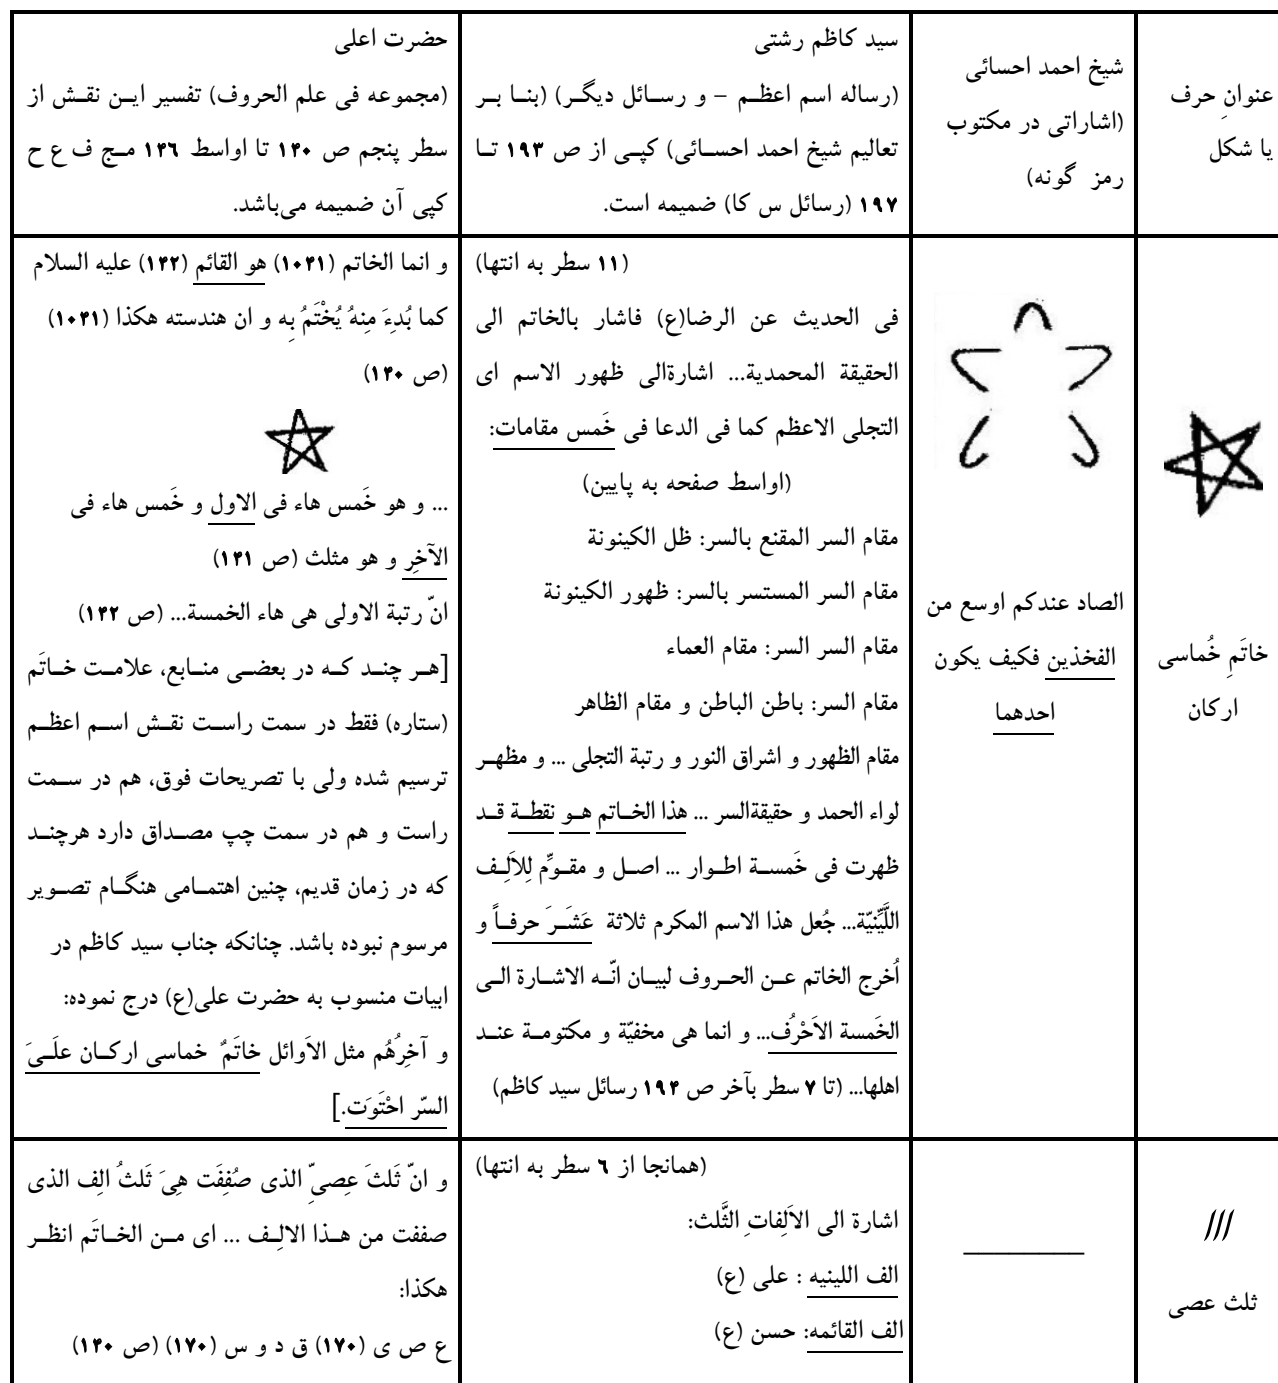 عنوانِ حرف
یا شکل
شیخ احمد احسائی
(اشاراتی در مکتوب
رمز گونه)
سید کاظم رشتی
(رساله اسم اعظم – و رسائل دیگر) (بنا بر
تعالیم شیخ احمد احسائی) کپی از ص ۱۹۳ تا
۱۹۷ (رسائل س کا) ضمیمه است.
حضرت اعلی
(مجموعه فی علم الحروف) تفسیر این نقش از
سطر پنجم ص ۱۴۰ تا اواسط ۱۴۶ مج ف ع ح
کپی آن ضمیمه می‌باشد.
خاتَمِ خُماسی
ارکان
الصاد عندکم اوسع من
الفخذین فکیف یکون
احدهما
(۱۱ سطر به انتها)
فی الحدیث عن الرضا(ع) فاشار بالخاتم الی
الحقیقة المحمدیة... اشارةالی ظهور الاسم ای
التجلی الاعظم کما فی الدعا فی خَمس مقامات:
(اواسط صفحه به پایین)
مقام السر المقنع بالسر: ظل الکینونة
مقام السر المستسر بالسر: ظهور الکینونة
مقام السر السر: مقام العماء
مقام السر: باطن الباطن و مقام الظاهر
مقام الظهور و اشراق النور و رتبة التجلی ... و مظهر
لواء الحمد و حقیقةالسر ... هذا الخاتم هو نقطة قد
ظهرت فی خَمسة اطوار ... اصل و مقوِّم لِلاَلِف
اللَّیِّنیّة... جُعل هذا الاسم المکرم ثلاثة عَشَرَ حرفاً و
اُخرج الخاتم عن الحروف لبیان انّه الاشارة الی
الخَمسة الاَحْرُف... و انما هی مخفیّة و مکتومة عند
اهلها... (تا ۷ سطر بآخر ص ۱۹۴ رسائل سید کاظم)
و انما الخاتم (۱۰۴۱) هو القائم (۱۴۲) علیه السلام
کما بُدِءَ مِنهُ یُخْتَمُ بِه و ان هندسته هکذا (۱۰۴۱)
(ص ۱۴۰)
... و هو خَمس هاء فی الاول و خَمس هاء فی
الآخِر و هو مثلث (ص ۱۴۱)
انّ رتبة الاولی هی هاء الخمسة... (ص ۱۴۲)
[هر چند که در بعضی منابع، علامت خاتَم
(ستاره) فقط در سمت راست نقش اسم اعظم
ترسیم شده ولی با تصریحات فوق، هم در سمت
راست و هم در سمت چپ مصداق دارد هرچند
که در زمان قدیم، چنین اهتمامی هنگام تصویر
مرسوم نبوده باشد. چنانکه جناب سید کاظم در
ابیات منسوب به حضرت علی(ع) درج نموده:
و آخِرُهُم مثل الاَوائل خاتَمٌ خماسی ارکان علَیَ
السّر احْتَوَت.]
ثلث عصی
(همانجا از ۶ سطر به انتها)
اشارة الی الاَلِفاتِ الثَّلث:
الف اللینیه : علی (ع)
الف القائمه: حسن (ع)
و انّ ثَلثَ عِصیِّ الذی صُفِفَت هِیَ ثَلثُ الِف الذی
صففت من هذا الالِف ... ای من الخاتَم انظر
هکذا:
ع ص ی (۱۷۰) ق د و س (۱۷۰) (ص ۱۴۰)